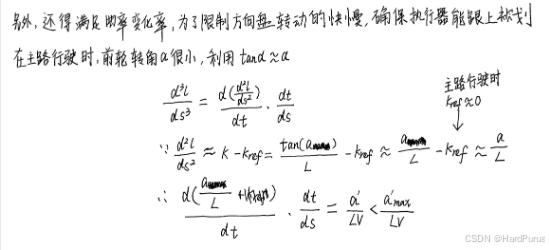 另外,还得满足曲率变化率,为了限制方向盘转动的快慢,确保执行器能跟上规划
在主路行驶时,前轮转角α很小,利用 tanα≈α
主路行驶时
Kref≈0
d³l/ds³ = d(d²l/ds²)/dt · dt/ds
∵ d²l/ds² ≈ K - Kref = tan(α)/L - Kref ≈ α/L - Kref ≈ α/L
∴ d(α/L)/dt · dt/ds = α'/LV < α'max/LV
CSDN @HardPurus